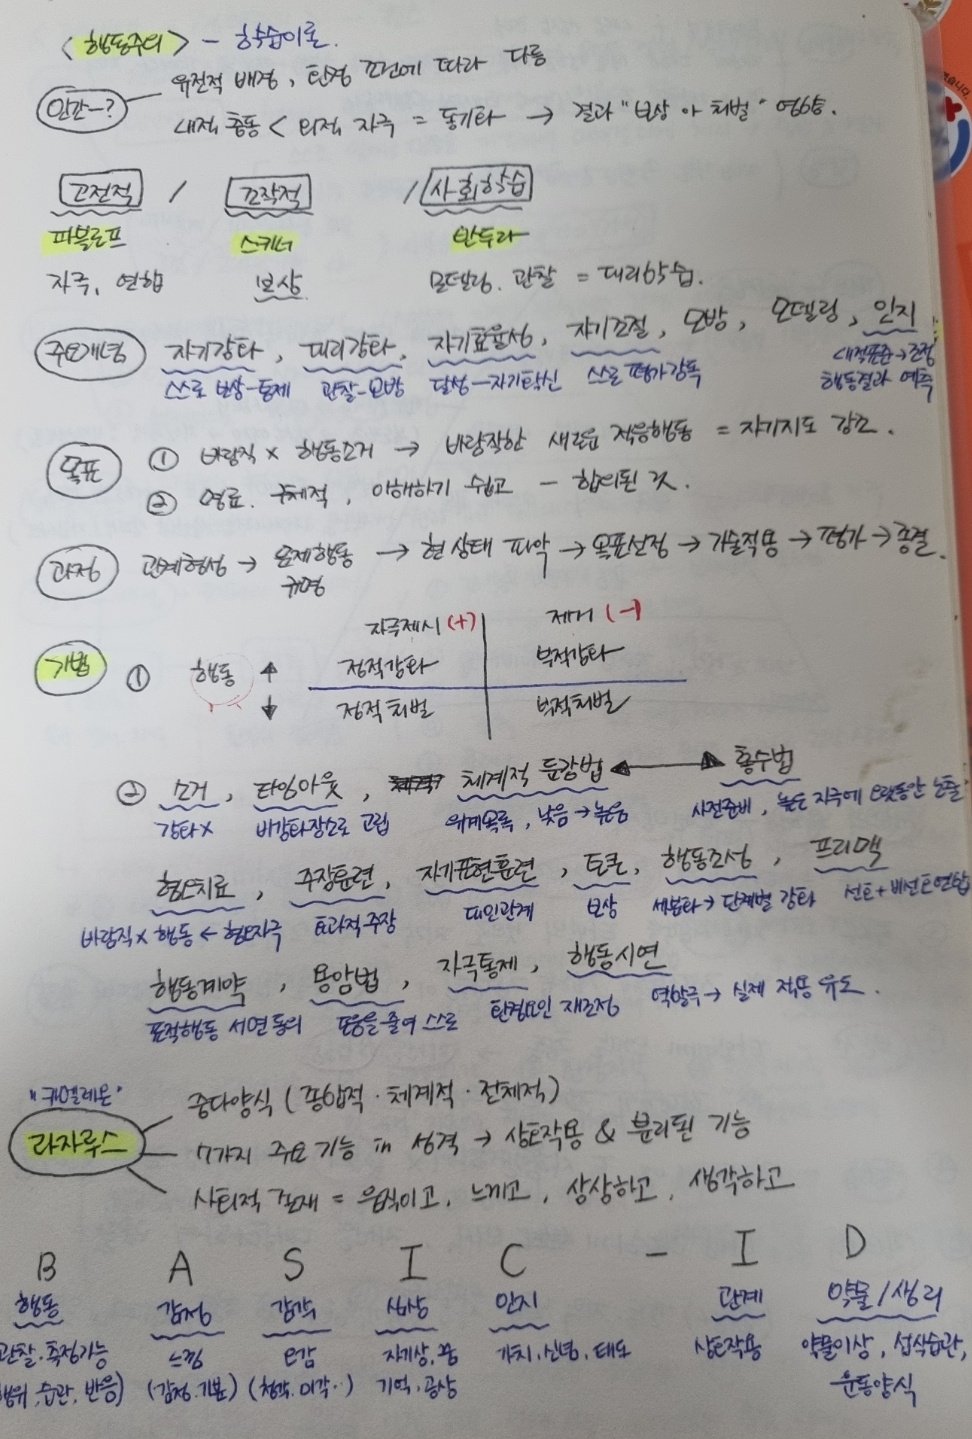 <행동주의> - 학습이론.
인간-?
유전적 배경, 환경 조건에 따라 다름
내적 충동 < 외적 자극 = 동기화 → 결과 "보상 or 처벌" 영향.
고전적 / 조작적 / 사회학습
파블로프 스키너 반두라
자극, 연합 보상 모델링. 관찰 = 대리학습.
주요개념 자기강화, 대리강화, 자기효율성, 자기조절, 모방, 모델링, 인지
스스로 보상-통제 관찰-모방 달성-자기확신 스스로 평가 감독 내적표준→조정
행동결과 예측
목표 ① 바람직 x 행동소거 → 바람직한 새로운 적응행동 = 자기지도 강조.
② 명료. 구체적, 이해하기 쉽고 - 합의된 것.
과정 관계형성 → 문제행동 → 현 상태 파악 → 목표선정 → 기술적용 → 평가 → 종결.
규명
자극제시 (+) 제거 (-)
기법 ① 행동 ↑ 정적강화 부적강화
↓ 정적처벌 부적처벌
② 소거, 타임아웃, 체계적 둔감법 ↔ 홍수법
강화x 비강화장소로 고립 위계목록, 낮음→높음 사전준비, 높은 자극에 오랫동안 노출
혐오치료, 주장훈련, 자기표현훈련, 토큰, 행동조성, 프리맥
바람직x 행동 ← 혐오자극 효과적 주장 대인관계 보상 세분화→단계별 강화 선호+비선호 연합
행동계약, 용암법, 자극통제, 행동시연
표적행동 서면동의 도움을 줄여 스스로 환경요인 재조정 역할극→ 실제 적용 유도.
"카멜레온"
라자루스
중다양식 (종합적·체계적·전체적)
7가지 주요 기능 in 성격 → 상호작용 & 분리된 기능
사회적 존재 = 움직이고, 느끼고, 상상하고, 생각하고
B A S I C - I D
행동 감정 감각 심상 인지 관계 약물/생리
관찰·측정가능 느낌 오감 자기상, 꿈 가치·신념·태도 상호작용 약물이상, 섭식습관,
행위, 습관, 반응) (감정·기분) (청각·미각··) 기억·공상 운동양식